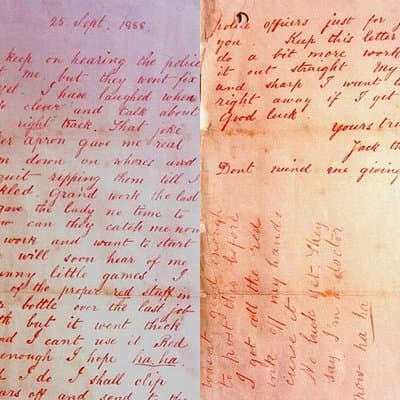 25 Sept. 1888.
keep on hearing the police
me, but they wont fix
yet. I have laughed when
so clever and talk about
right track. That joke
er apron gave me real
m down on whores and
quit ripping them till I
ckled. Grand work the last
gave the lady no time to
ow can they catch me now
work and want to start
will soon hear of me
unny little games. I
of the proper red stuff in
er bottle over the last job
th but it went thick
nd I cant use it. Red
enough I hope ha. ha
I do I shall clip
ars off and send to the
police officers just for j
you. Keep this letter
do a bit more work
it out straight. My
and sharp I want t
right away if I get
Good luck.
Yours tru
Jack th
Dont mind me giving
enough
to post this before
I got all the red
ink off my hands
curse it
No luck yet. They
say I'm a doctor
now ha ha